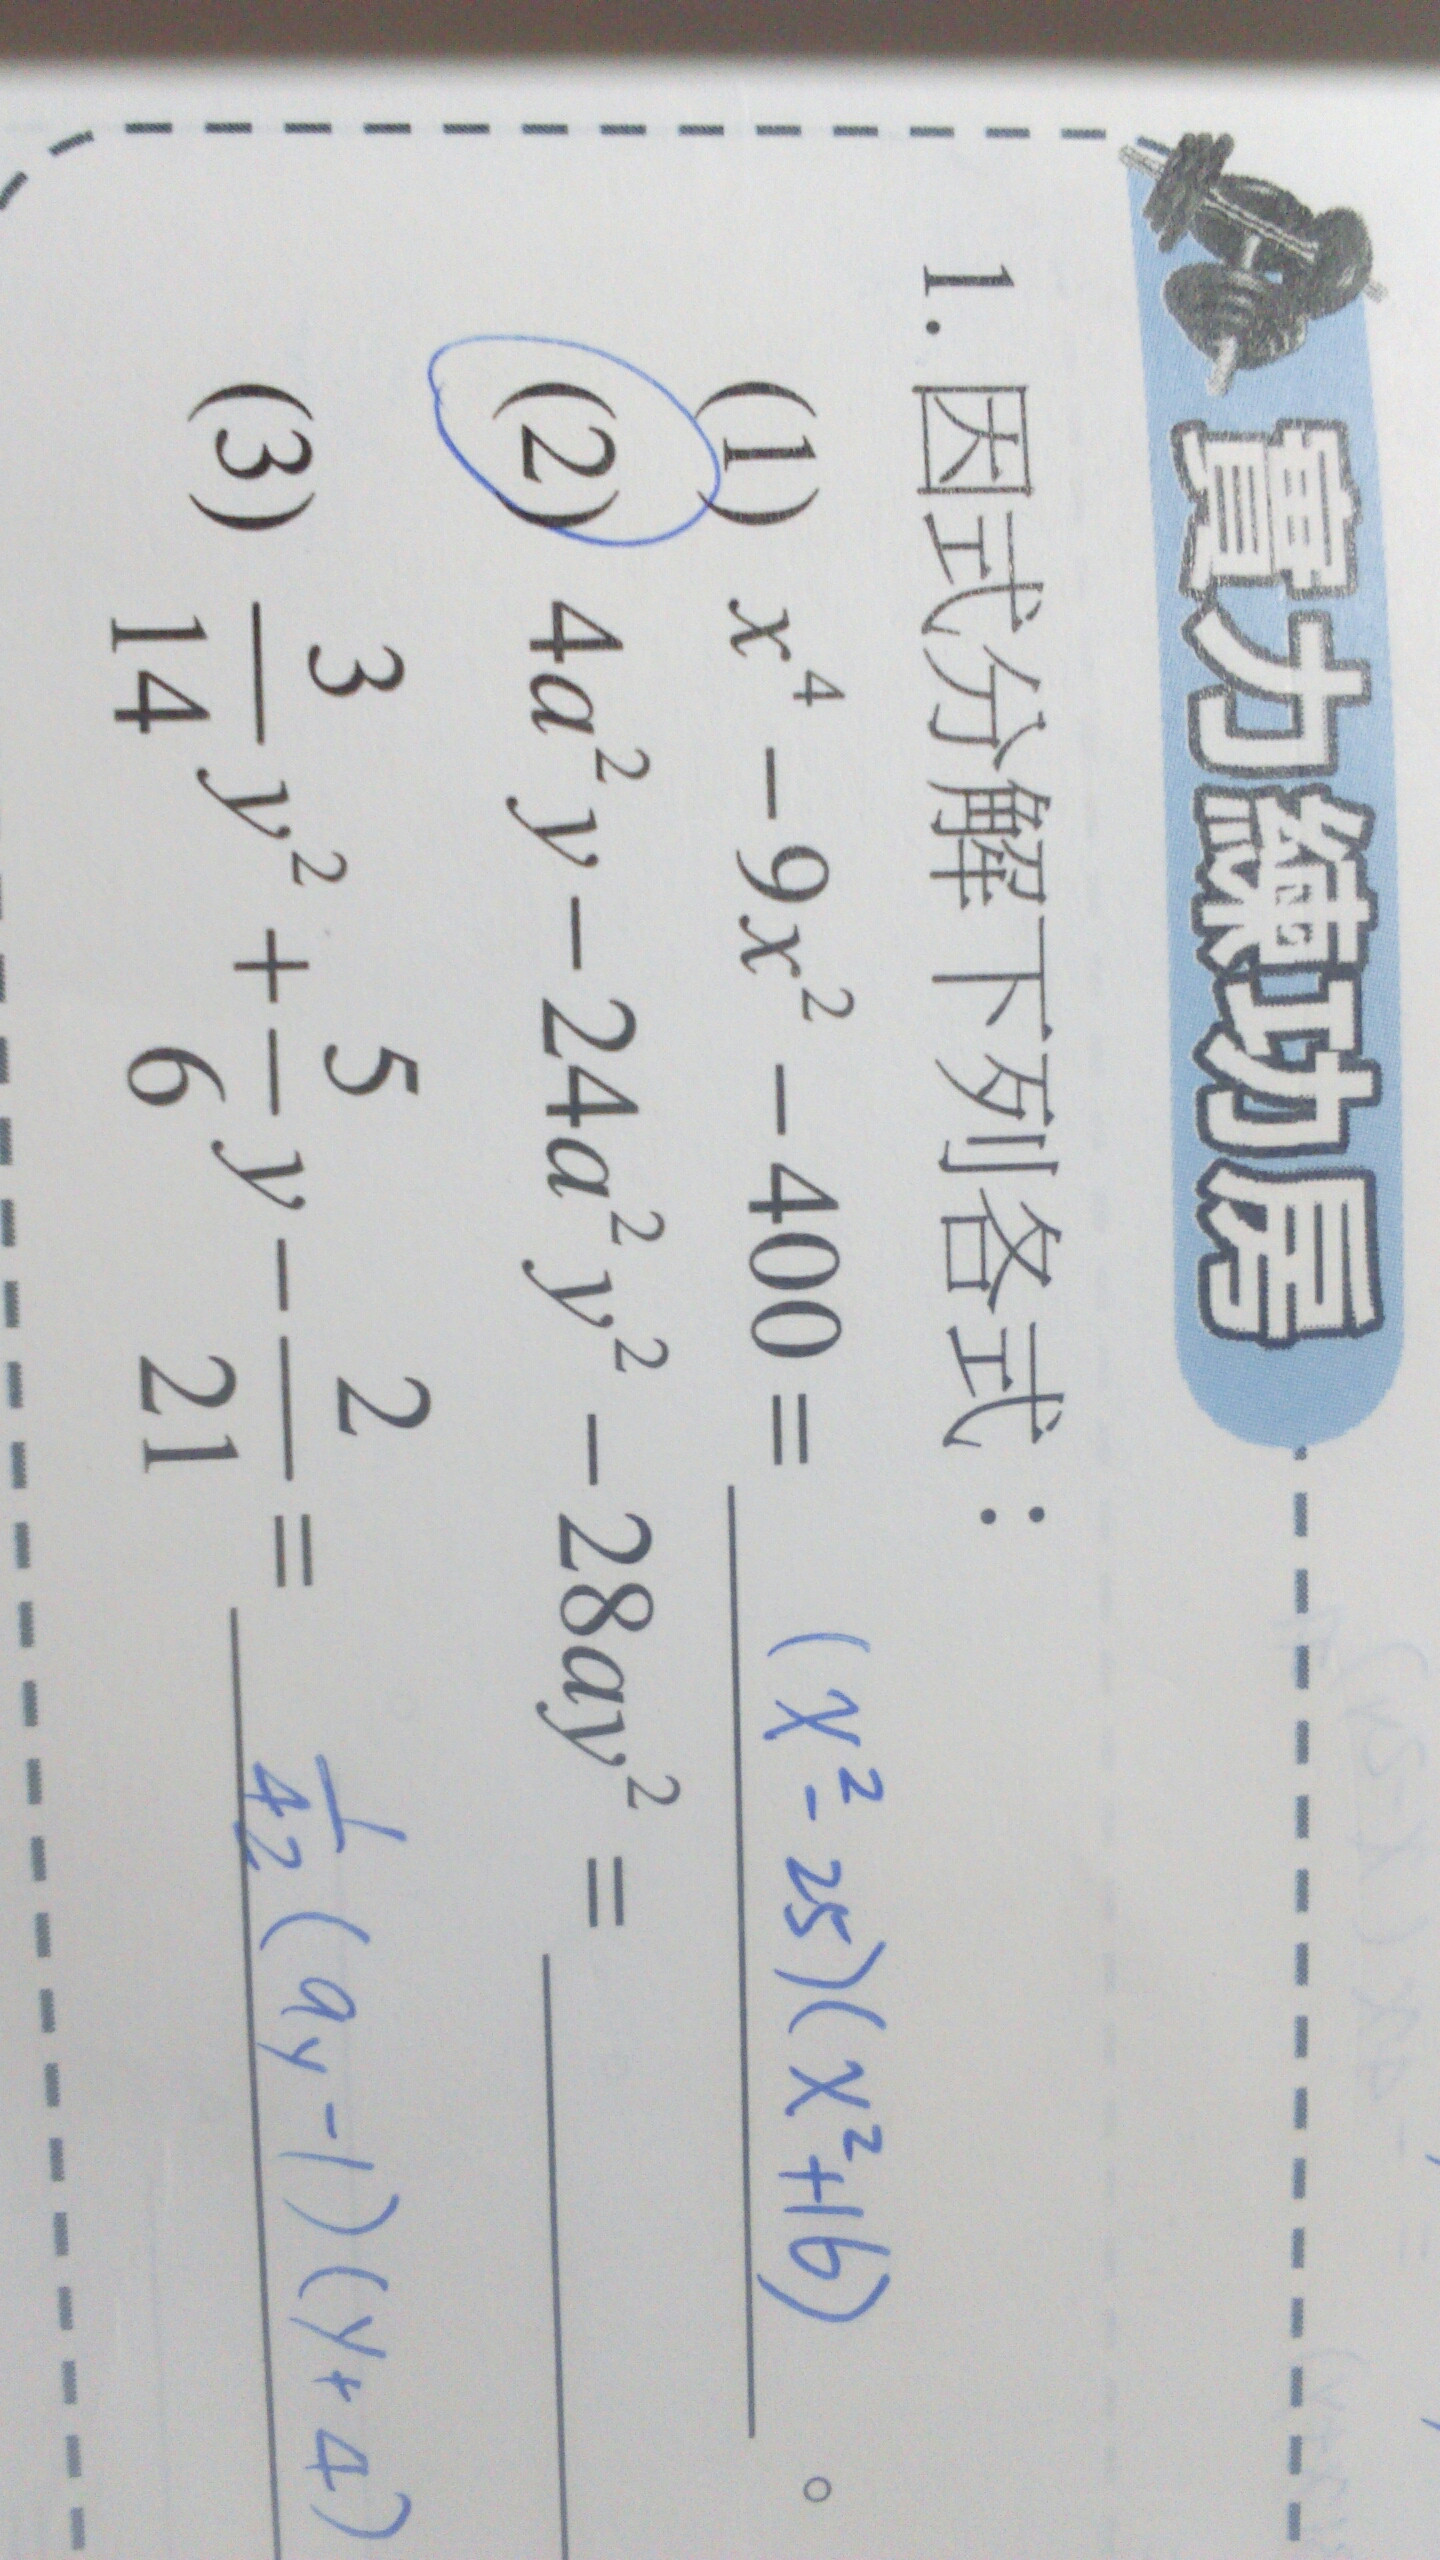 實力練功房
1. 因式分解下列各式：
(1) x⁴ − 9x² − 400 = (x² - 25)(x² + 16) 。
(2) 4a²y − 24a²y² − 28ay² =
(3) 3/14 y² + 5/6 y − 2/21 = 1/42 (9y - 1)(y + 4)